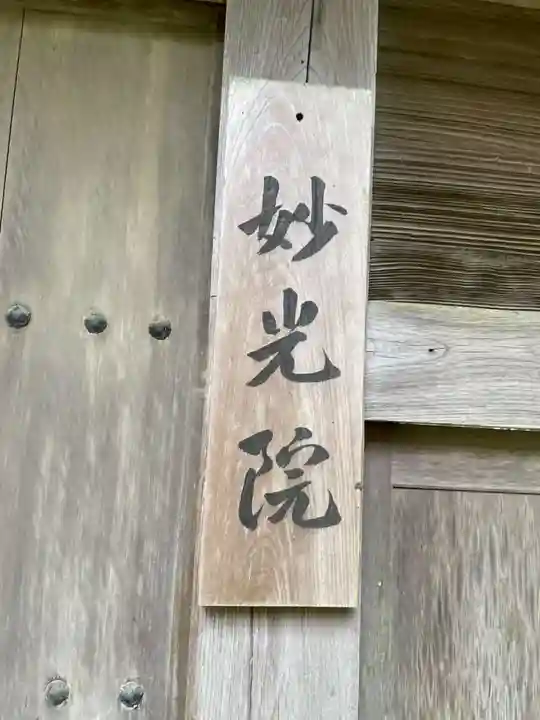 妙光院